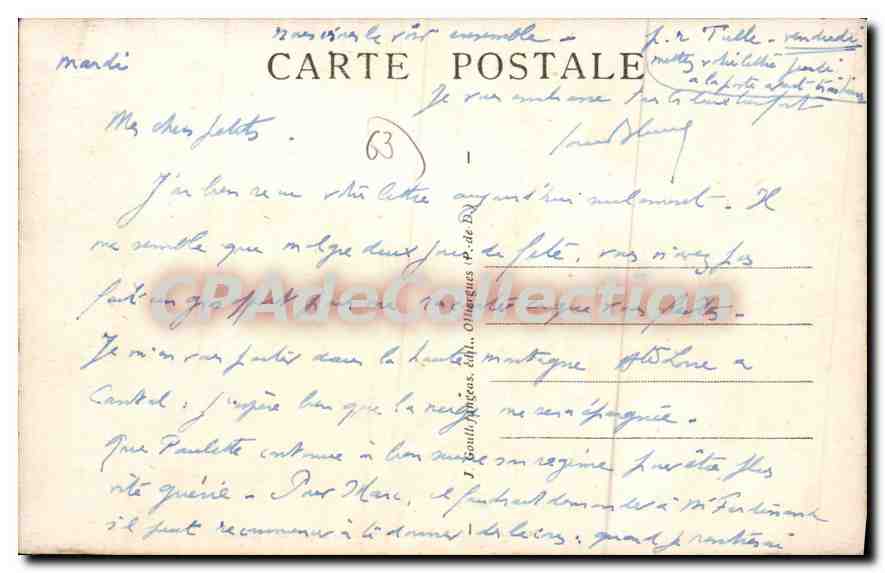 mardi
ensemble -
p. r Tulle - vendredi
CARTE POSTALE
Je vous embrasse
Mes chers petits.
63
J'ai bien reçu votre lettre aujourd'hui seulement. Il
me semble que malgré deux jours de fête, vous n'avez pas
fait un gros effort pour me raconter ce que vous faites.
CPAdeCollection
Je m'en vais partir dans la haute montagne Hte Loire et
Cantal ; j'espère bien que la neige me sera épargnée.
Que Paulette continue à bien suivre son régime pour être plus
vite guérie - Pour Marc, il faudrait demander à Mr Ferdinand
s'il peut recommencer à te donner des leçons ; quand je rentrerai
J. Goutte-fangeas, édit., Olliergues (P.-de-D.)